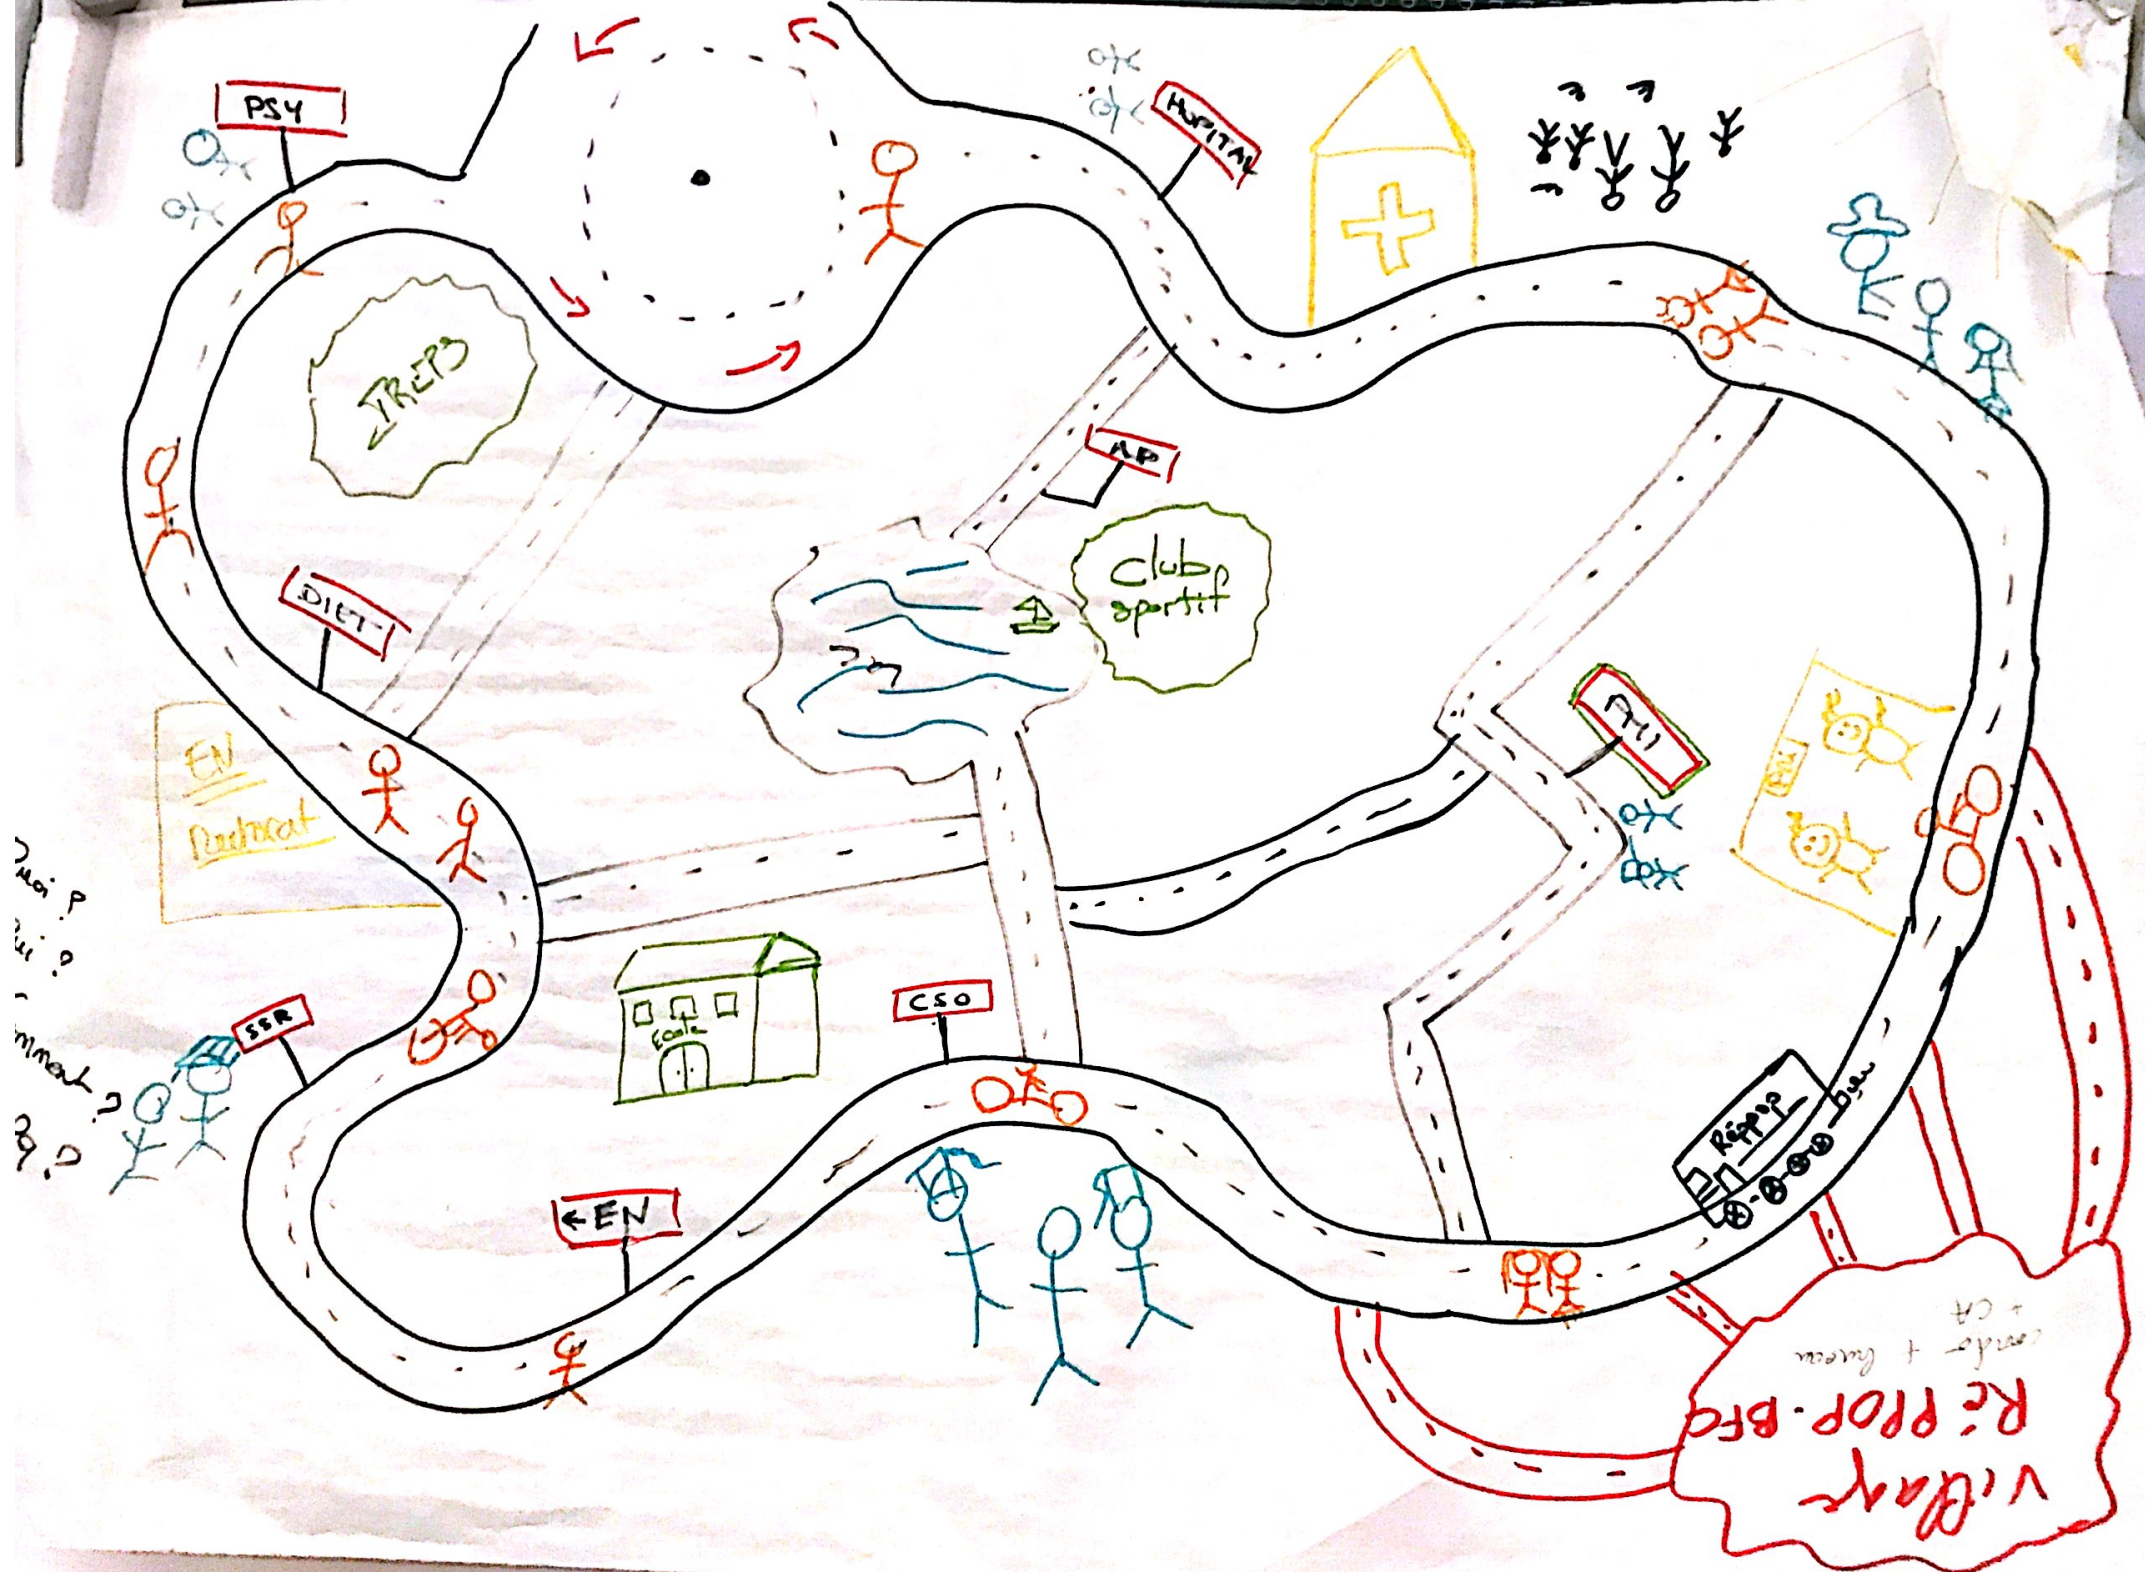 PSY
HOPITAL
IREPS
AP
Club
sportif
DIET
PMI
EN
Rectorat
Quoi ?
Qui ?
Comment ?
Pq ?
SSR
Ecole
CSO
← EN
Réppop
Village
RéPPOP-BFC
coordo + bureau
+ CA